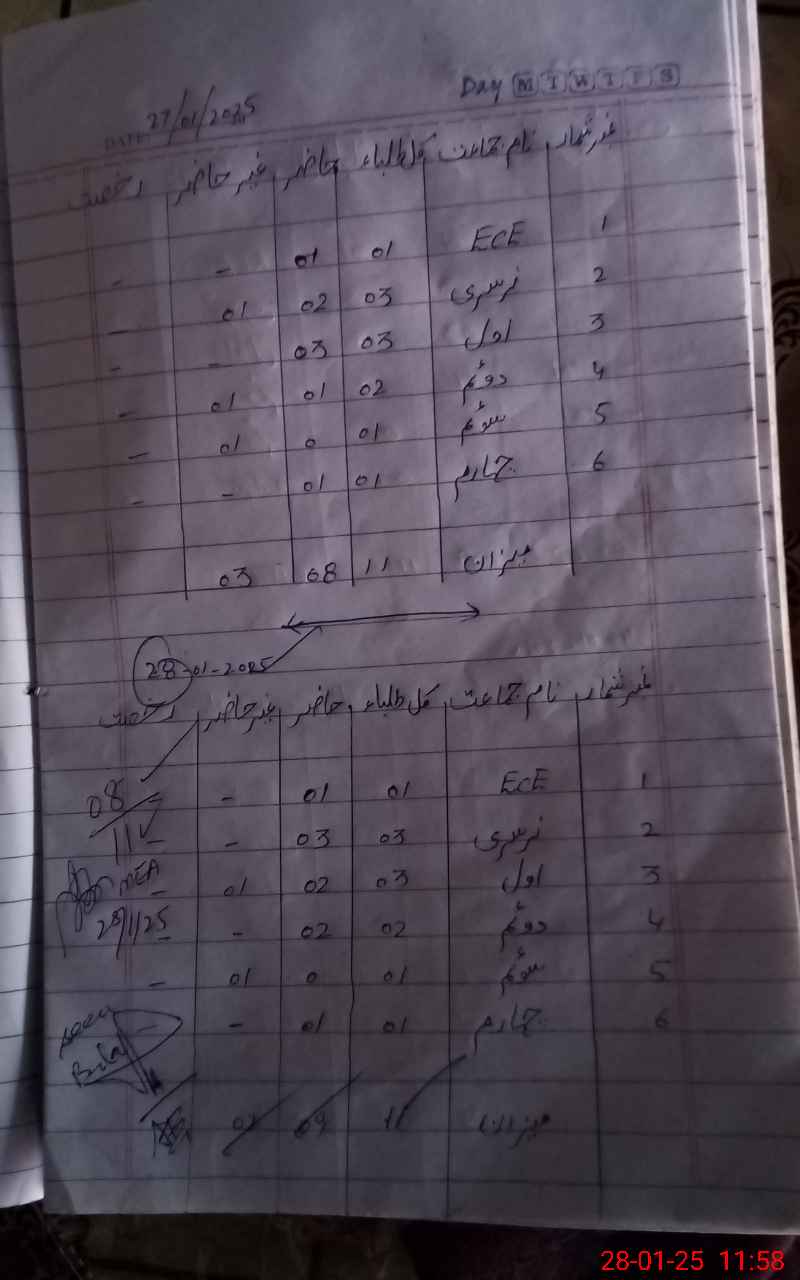 Day M T W T F S
DATE 27/01/2025
نمبر شمار نام جماعت کل طلباء حاضر غیر حاضر رخصت
1 ECE 01 01 - -
2 نرسری 03 02 01 -
3 اول 03 03 - -
4 دوئم 02 01 01 -
5 سوئم 01 0 01 -
6 چہارم 01 01 - -
میزان 11 08 03
28-01-2025
نمبر شمار نام جماعت کل طلباء حاضر غیر حاضر رخصت
1 ECE 01 01 - -
2 نرسری 03 03 - -
3 اول 03 02 01 -
4 دوئم 02 02 - -
5 سوئم 01 0 01 -
6 چہارم 01 01 - -
میزان 11 09 02
08
11
MEA
28/1/25
seen
28-01-25 11:58